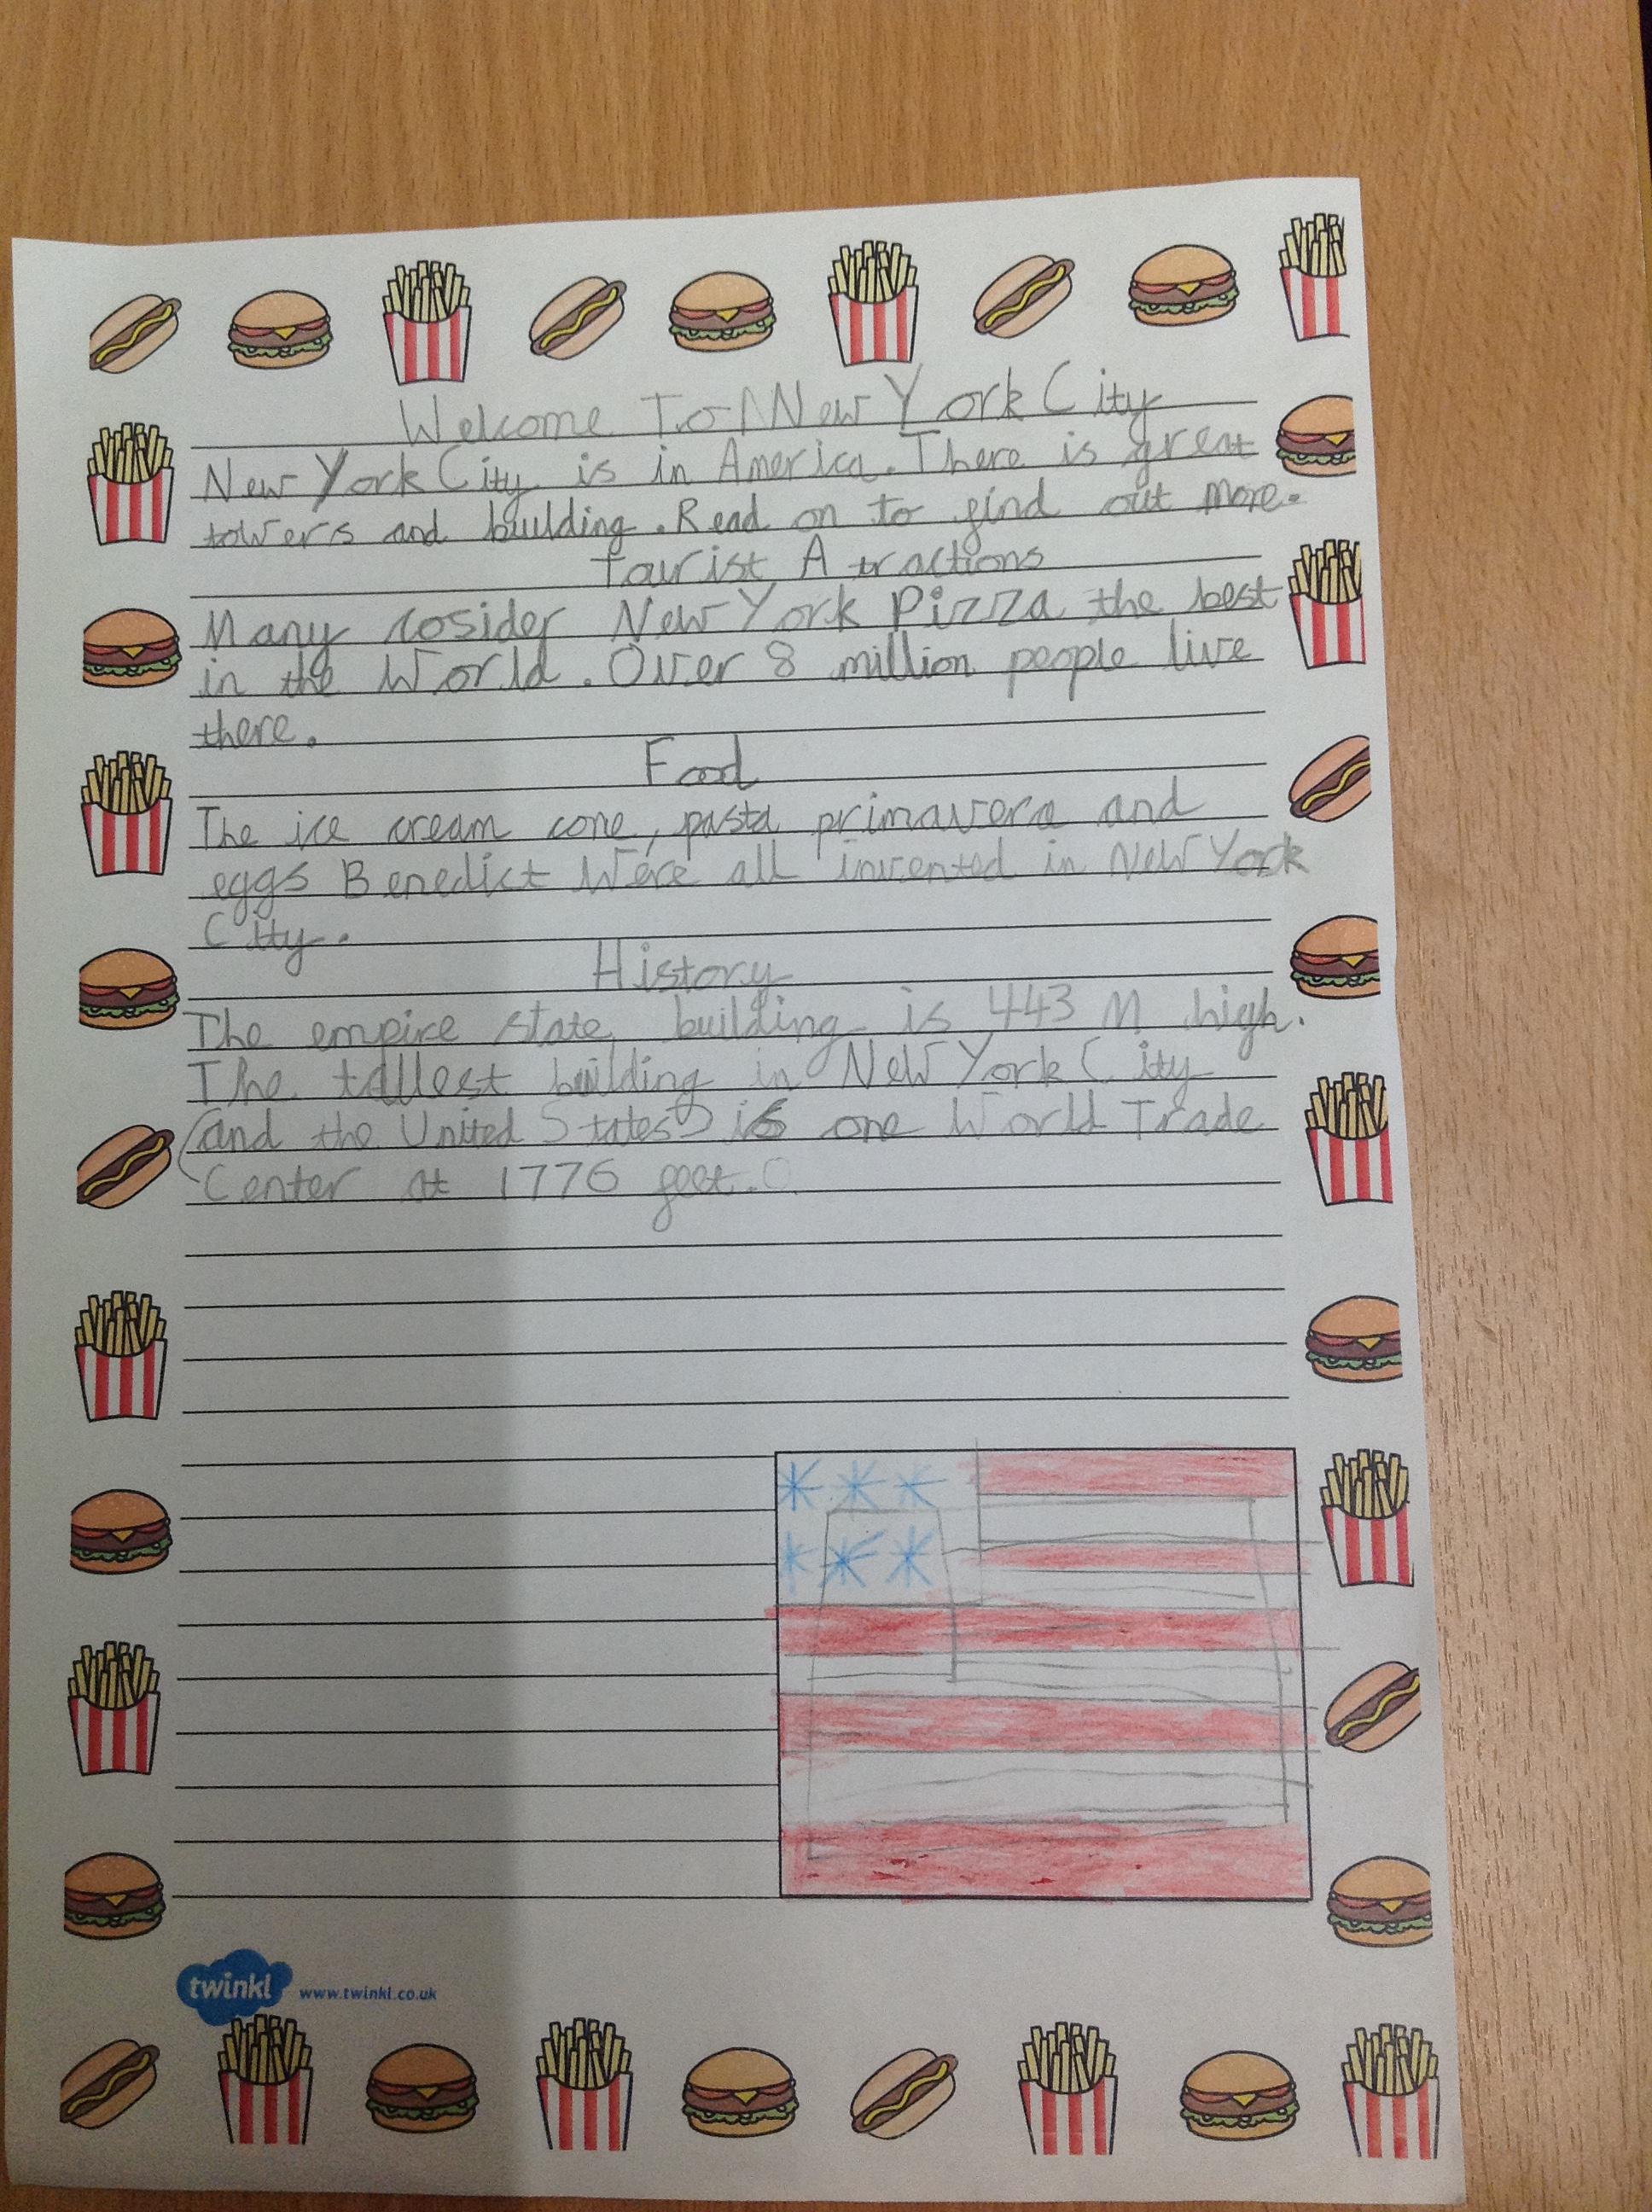 Welcome To New York City
New York City is in America. There is great
towers and building. Read on to find out more.
Tourist Atractions
Many cosider New York Pizza the best
in the World. Over 8 million people live
there.
Food
The ice cream cone, pasta primavera and
eggs Benedict Were all invented in New York
City.
History
The empire state building is 443 M high.
The tallest building in New York City
(and the United States) is one World Trade
Center at 1776 feet.
twinkl www.twinkl.co.uk